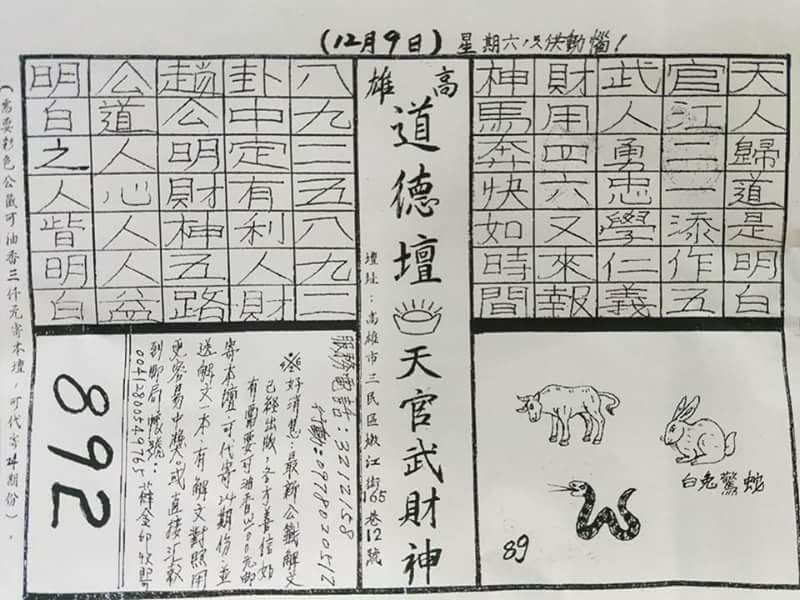 (12月9日) 星期六只供動惱!
天人歸道是明白
官江二一添作五
武人勇忠學仁義
財用四六又來報
神馬奔快如時間
高雄
道德壇 天官武財神
壇址:高雄市三民區嫩江街165巷12號
八九二五八九二
卦中定有利人財
趙公明財神五路
公道人心人人益
明白之人皆明白
白兔驚蛇
89
服務電話:3212158
行動:0978020512
※好消息:最新公籤解文
已經出版,各方善信如
有需要可油香3000元郵
寄本壇可代寄24期份,並
送解文一本,有解文對照用
更容易中獎。或直接汇款
到郵局帳號:
00412800549765
892
(需要彩色公籤可油香三仟元寄本壇,可代寄24期份)。